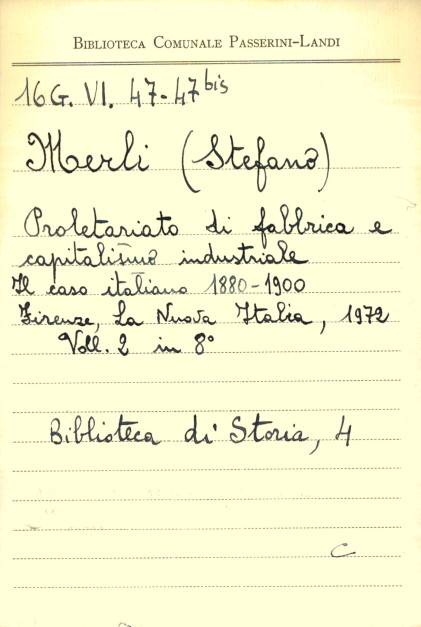 BIBLIOTECA COMUNALE PASSERINI-LANDI
16 G. VI. 47-47 bis
Merli (Stefano)
Proletariato di fabbrica e
capitalismo industriale
Il caso italiano 1880-1900
Firenze, La Nuova Italia, 1972
Voll. 2 in 8°
Biblioteca di Storia, 4
C